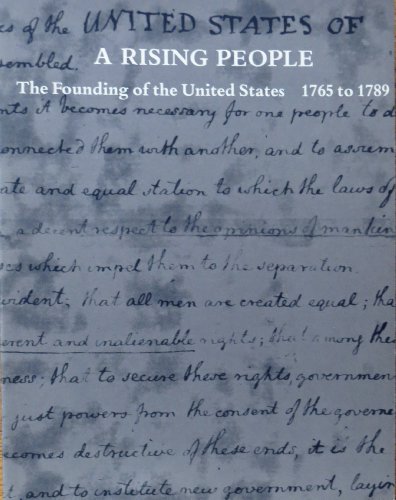 es of the UNITED STATES OF
sembled.
A RISING PEOPLE
The Founding of the United States 1765 to 1789
nts it becomes necessary for one people to d
onnected them with another, and to assum
ate and equal station to which the laws of
a decent respect to the opinions of mankin
ses which impel them to the separation.
vident; that all men are created equal; tha
erent and inalienable rights; that among the
ness: that to secure these rights, governmen
just powers from the consent of the governe
ecomes destructive of these ends, it is the
et, and to institute new government, layin